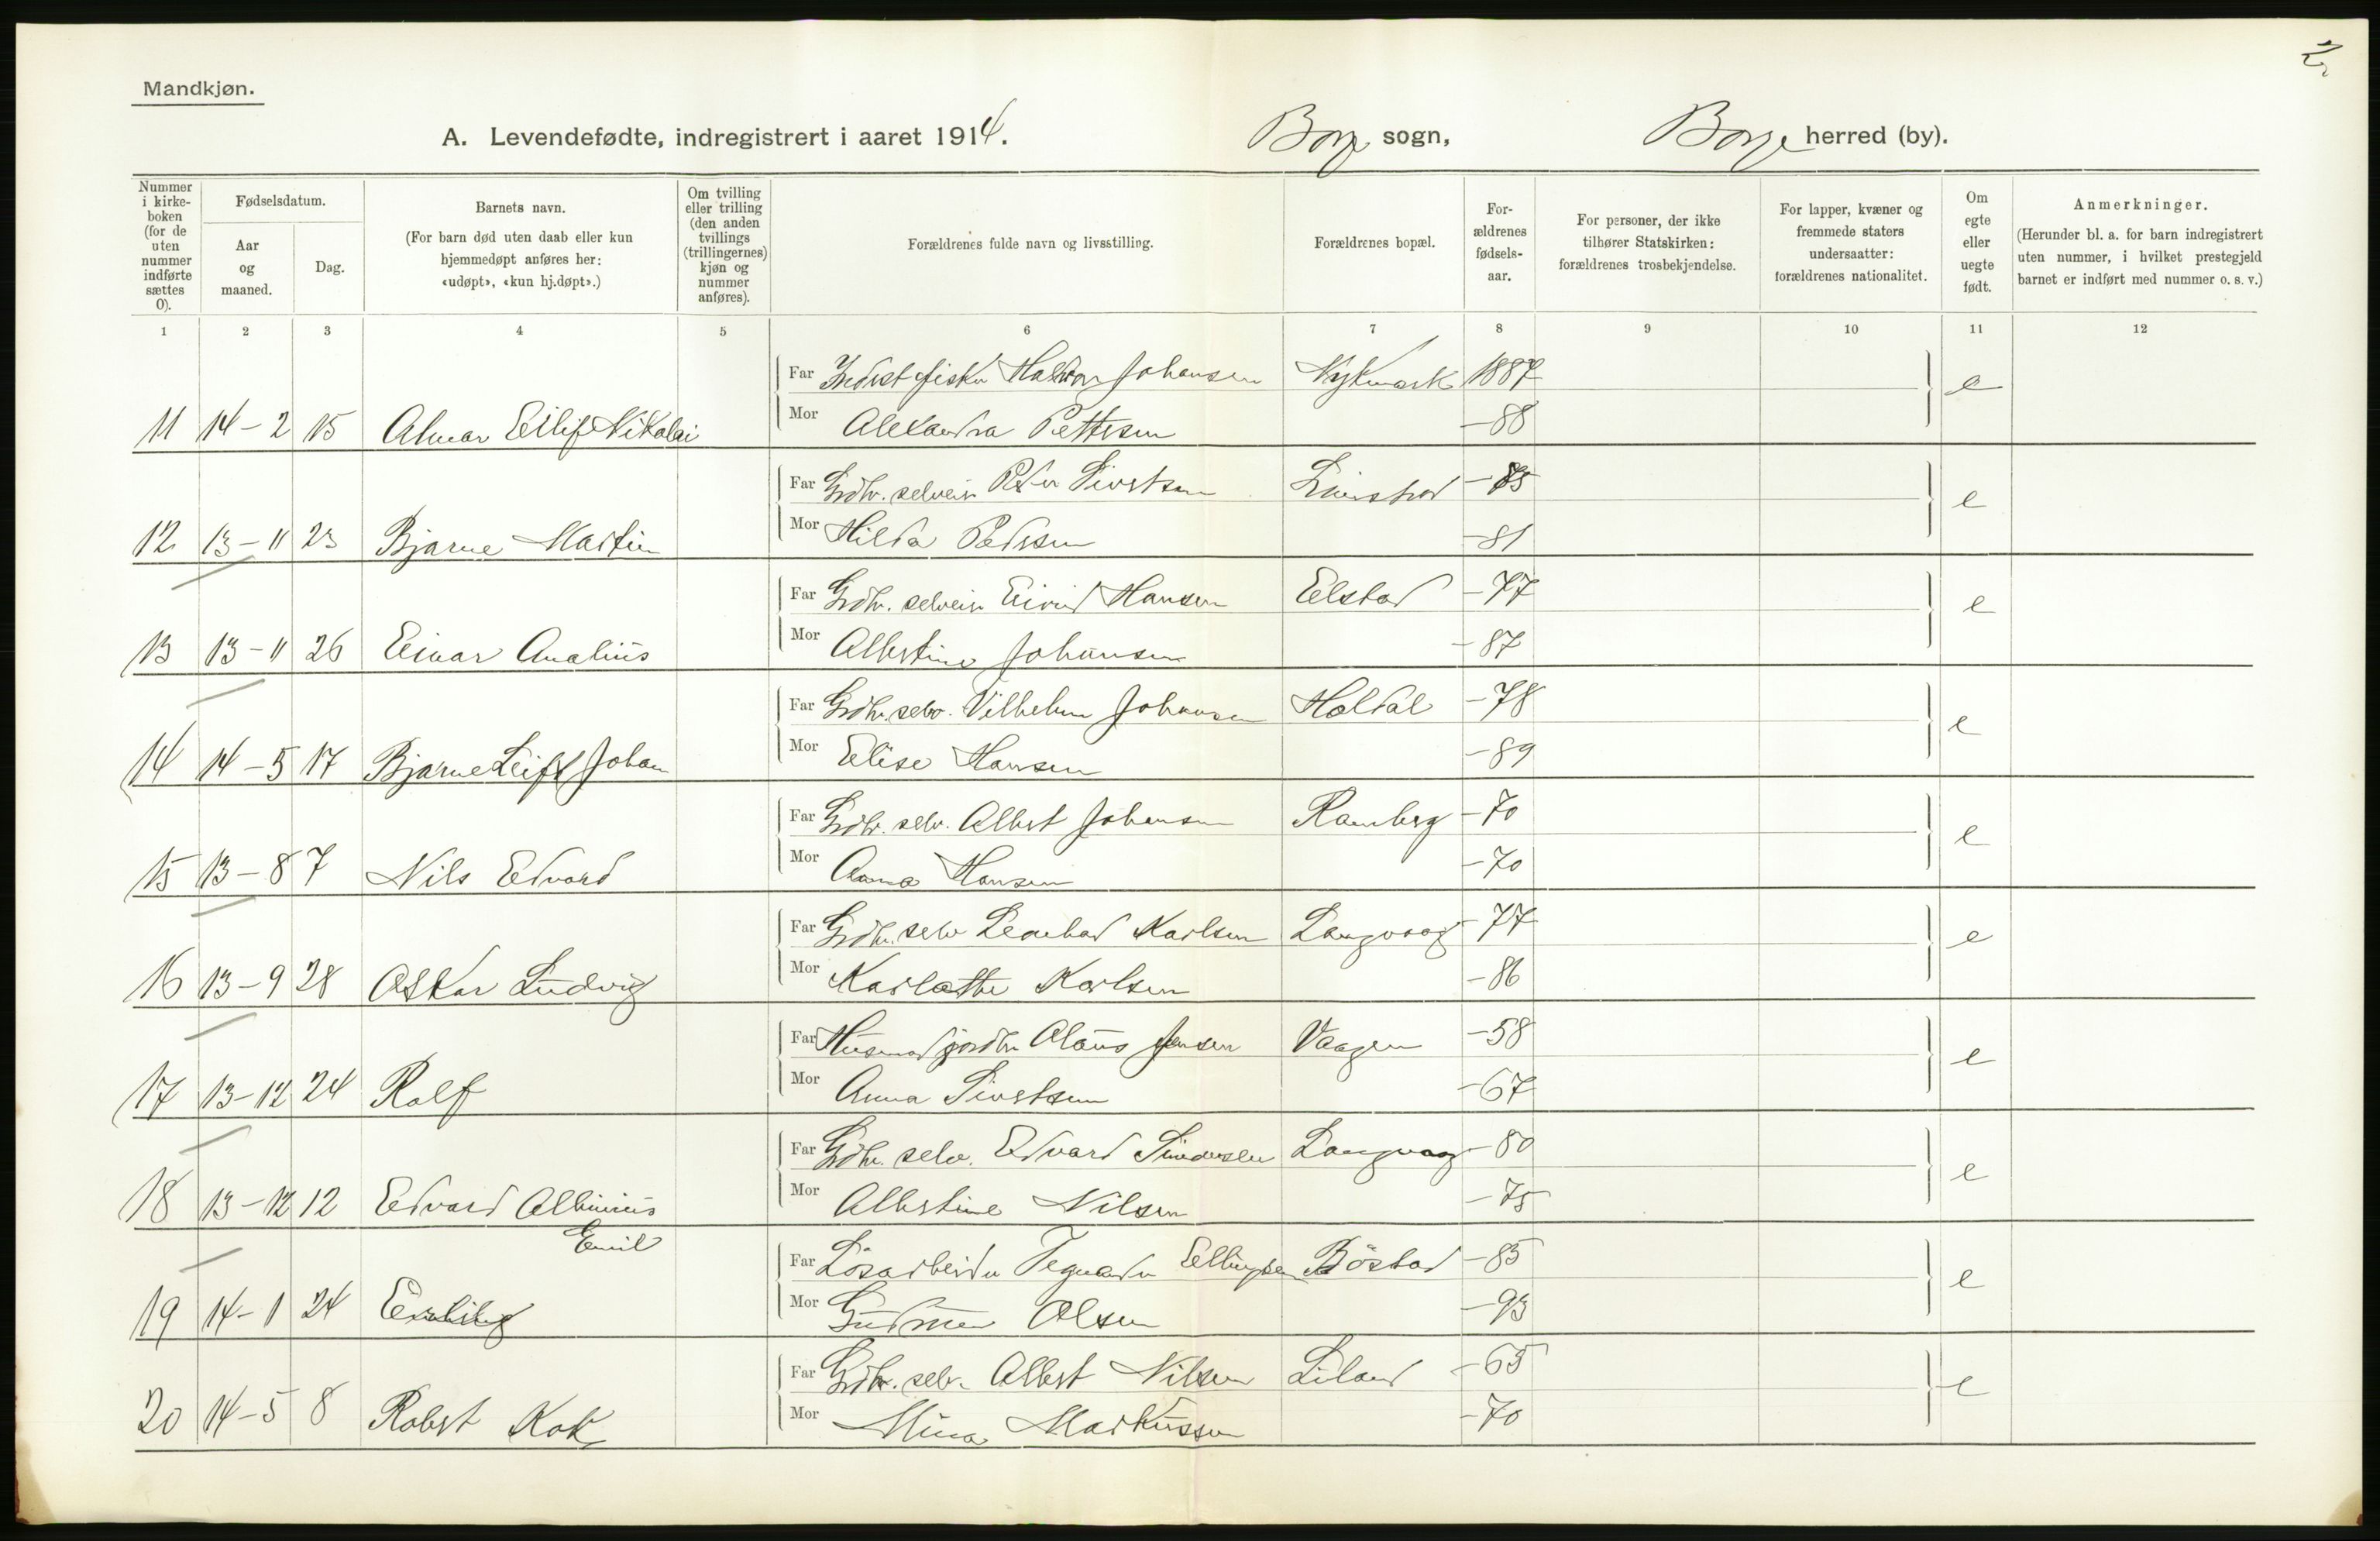 2
Mandkjøn.
A. Levendefødte, indregistrert i aaret 1914. Borge sogn, Borge herred (by).
Nummer i kirke-boken (for de uten nummer indførte sættes 0).
Fødselsdatum.
Aar og maaned.
Dag.
Barnets navn.
(For barn død uten daab eller kun hjemmedøpt anføres her: «udøpt», «kun hj.døpt».)
Om tvilling eller trilling (den anden tvillings (trillingernes) kjøn og nummer anføres).
Forældrenes fulde navn og livsstilling.
Forældrenes bopæl.
For-ældrenes fødsels-aar.
For personer, der ikke tilhører Statskirken: forældrenes trosbekjendelse.
For lapper, kvæner og fremmede staters undersaatter: forældrenes nationalitet.
Om egte eller uegte født.
Anmerkninger.
(Herunder bl. a. for barn indregistrert uten nummer, i hvilket prestegjeld barnet er indført med nummer o. s. v.)
1 2 3 4 5 6 7 8 9 10 11 12
Far fisker Halvor Johansen 1887 e
11 14-2 15 Almar Eilif Nikolai Mor Alexandra Pettersen -88
Far Grdbr. selveier Peder Sivertsen -85 e
12 13-11 23 Bjarne Martin Mor Hilda Pedersen -81
Far Grdbr. selveier Eivind Hansen Elstad -77 e
13 13-11 26 Einar Analius Mor Albertine Johansen -87
Far Grdbr. selv. Vilhelm Johansen Haldal -78 e
14 14-5 17 Bjarne Leif Johan Mor Elise Hansen -89
Far Grdbr. selv. Albert Johansen Ramberg -70 e
15 13-8 7 Nils Edvard Mor Anna Hansen -70
Far Grdbr. selv Leonhard Karlsen Langvaag -77 e
16 13-9 28 Oskar Ludvig Mor Karlothe Karlsen -86
Far Husmand jordbr Olaus Jensen Vaagen -58 e
17 13-12 24 Rolf Mor Anna Sivertsen -67
Far Grdbr. selv. Edvard Simonsen Langvaag -80 e
18 13-12 12 Edvard Albinius Mor Albertine Nilsen -75
Emil
Far Løsarbeider Tegnander Ellingsen Bøstad -85 e
19 14-1 24 Erling Mor Olsen -93
Far Grdbr. selv. Albert Nilsen Liland -65 e
20 14-5 8 Robert Kok Mor Mina Markussen -70